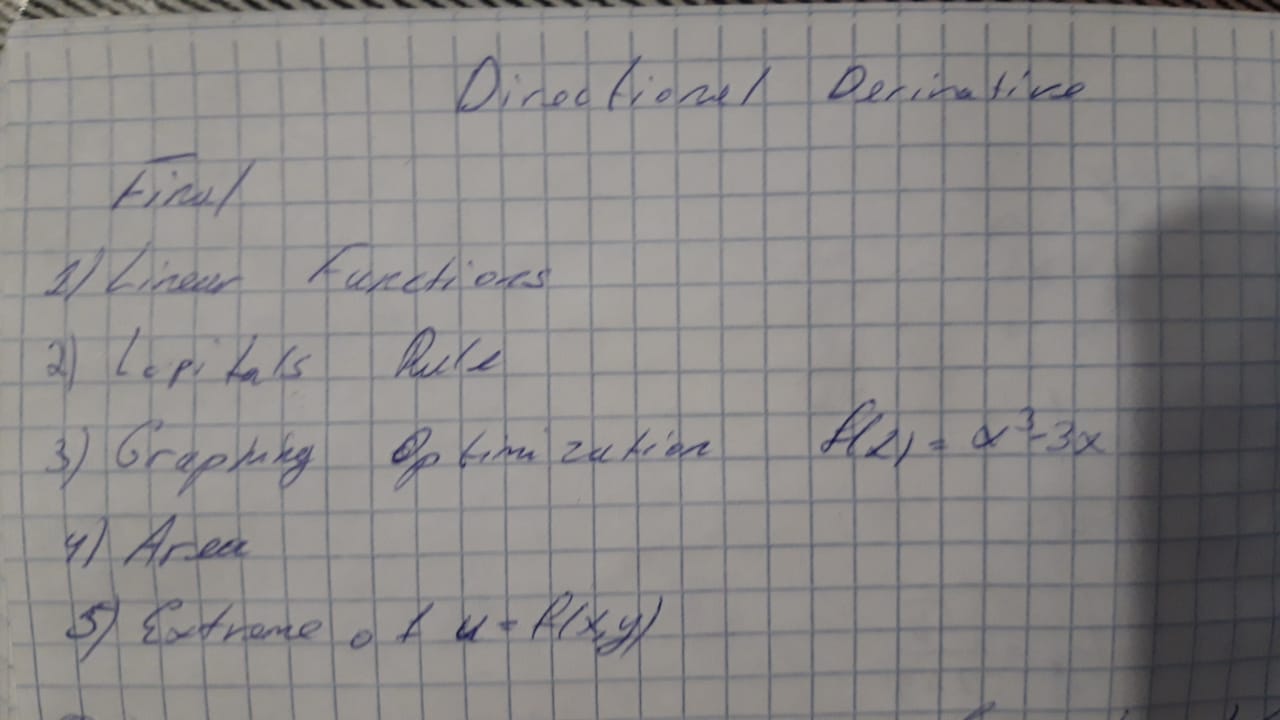 Directional Derivative
Final
1) Linear Functions
2) Lopitals Rule
3) Graphing Optimization f(2) = x³-3x
4) Area
5) Extreme of u = f(x,y)